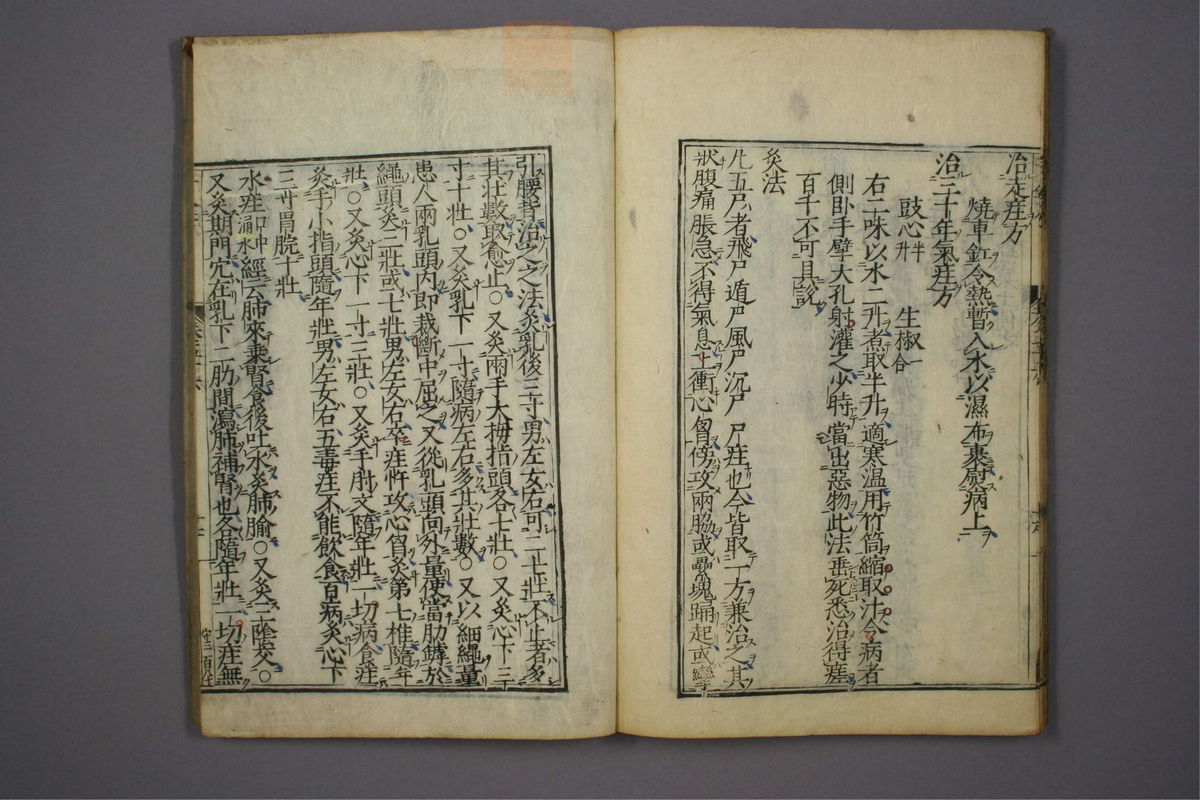 治走疰方
燒車釭令熱暫入水以濕布裹熨病上
治三十年氣疰方
豉心半升 生椒合
右二味以水二升煮取半升適寒溫用竹筒縮取汁令病者
側臥手擘大孔射灌之少時當出惡物此法垂死悉治得瘥
百千不可具說
灸法
凡五尸者飛尸遁尸風尸沉尸尸疰也今皆取一方兼治之其
狀腹痛脹急不得氣息上衝心胷傍攻兩脇或壘塊踊起或攣
引腰背治之之法灸乳後三寸男左女右可二七壯不止者多
其壯數取愈止○又灸兩手大拇指頭各七壯○又灸心下三
寸十壯○又灸乳下一寸隨病左右多其壯數○又以細繩量
患人兩乳頭內即裁斷中屈之又從乳頭向外量使當肋罅於
繩頭灸三壯或七壯男左女右卒疰忤攻心胷灸第七椎隨年
壯○又灸心下一寸三壯○又灸手肘文隨年壯一切病食疰
灸手小指頭隨年壯男左女右五毒疰不能飲食百病灸心下
三寸胃脘十壯
水疰口中涌水經云肺來乘腎食後吐水灸肺腧○又灸三陰交○
又灸期門穴在乳下二肋間瀉肺補腎也各隨年壯一切疰無